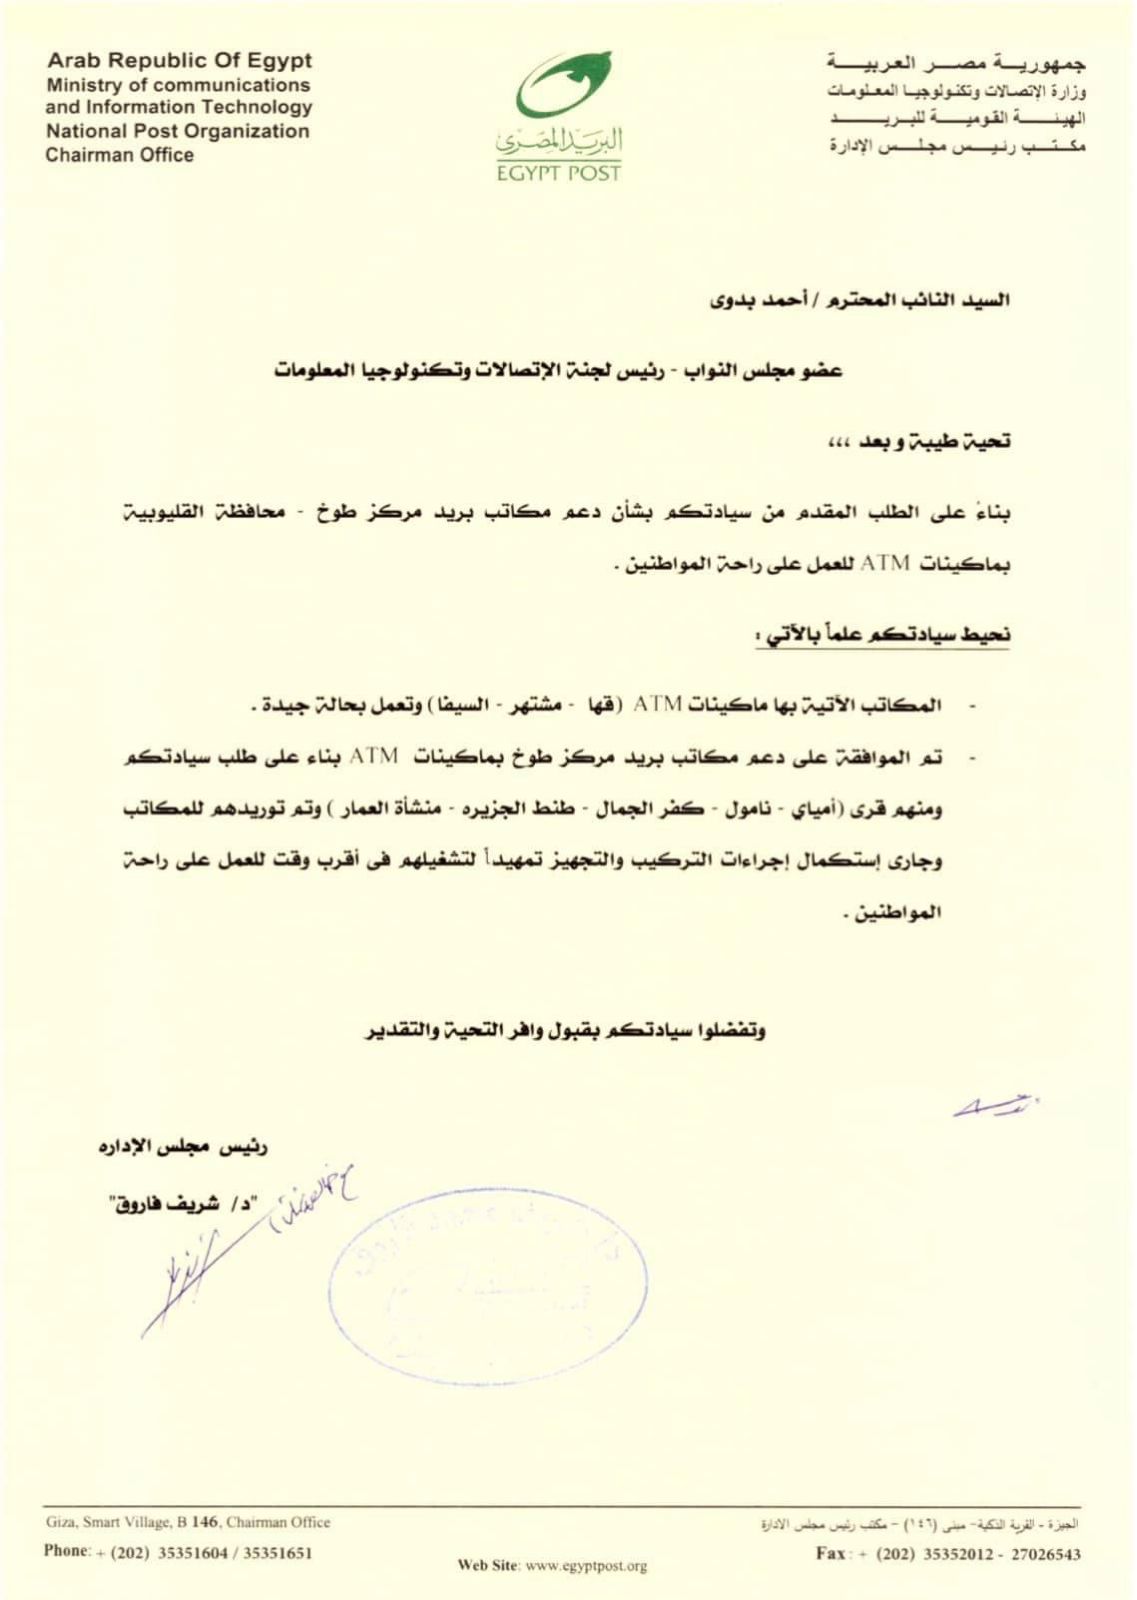 Arab Republic Of Egypt
Ministry of communications
and Information Technology
National Post Organization
Chairman Office
البريد المصرى
EGYPT POST
جمهورية مصر العربية
وزارة الإتصالات وتكنولوجيا المعلومات
الهيئة القومية للبريد
مكتب رئيس مجلس الإدارة
السيد النائب المحترم / أحمد بدوى
عضو مجلس النواب - رئيس لجنة الإتصالات وتكنولوجيا المعلومات
تحية طيبة و بعد ،،،
بناءً على الطلب المقدم من سيادتكم بشأن دعم مكاتب بريد مركز طوخ - محافظة القليوبية
بماكينات ATM للعمل على راحة المواطنين .
نحيط سيادتكم علماً بالآتي :
- المكاتب الآتية بها ماكينات ATM (قها - مشتهر - السيفا) وتعمل بحالة جيدة .
- تم الموافقة على دعم مكاتب بريد مركز طوخ بماكينات ATM بناء على طلب سيادتكم
ومنهم قرى (أمياي - نامول - كفر الجمال - طنط الجزيره - منشأة العمار ) وتم توريدهم للمكاتب
وجارى إستكمال إجراءات التركيب والتجهيز تمهيداً لتشغيلهم فى أقرب وقت للعمل على راحة
المواطنين .
وتفضلوا سيادتكم بقبول وافر التحية والتقدير
رئيس مجلس الإداره
"د/ شريف فاروق"
Giza, Smart Village, B 146, Chairman Office
Phone: + (202) 35351604 / 35351651
Web Site: www.egyptpost.org
الجيزة - القرية الذكية- مبنى (١٤٦) - مكتب رئيس مجلس الادارة
Fax : + (202) 35352012 - 27026543